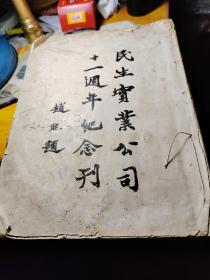 民生實業公司
十一週年紀念刊
趙熙題